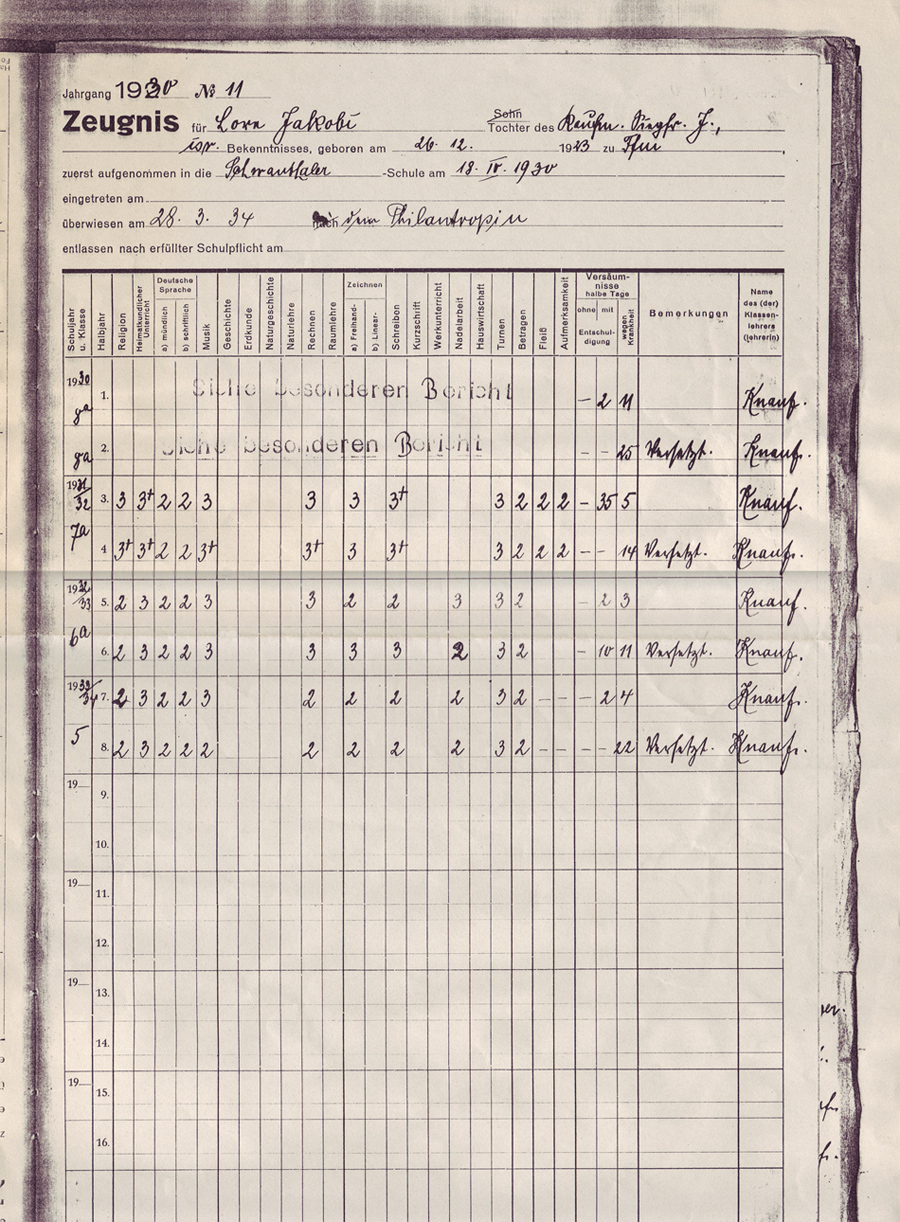 Jahrgang 1930 № 11
Zeugnis für Lore Jakobi Sohn Tochter des Kaufm. Siegfr. J.,
isr. Bekenntnisses, geboren am 26. 12. 1923 zu Ffm
zuerst aufgenommen in die Schwanthaler -Schule am 18. IV. 1930
eingetreten am
überwiesen am 28. 3. 34 dem Philantropin
entlassen nach erfüllter Schulpflicht am
Schuljahr u. Klasse Halbjahr Religion Heimatkundlicher Unterricht Deutsche Sprache a) mündlich b) schriftlich Musik Geschichte Erdkunde Naturgeschichte Naturlehre Rechnen Raumlehre Zeichnen a) Freihand- b) Linear- Schreiben Kurzschrift Werkunterricht Nadelarbeit Hauswirtschaft Turnen Betragen Fleiß Aufmerksamkeit Versäumnisse halbe Tage ohne mit Entschuldigung wegen Krankheit Bemerkungen Name des (der) Klassenlehrers (lehrerin)
1930 8a 1. Siehe besonderen Bericht – 2 11 Knauf.
8a 2. Siehe besonderen Bericht - - 25 Versetzt. Knauf.
1931/32 3. 3 3+ 2 2 3 3 3 3+ 3 2 2 2 – 35 5 Knauf.
7a 4 3+ 3+ 2 2 3+ 3+ 3 3+ 3 2 2 2 – – 14 Versetzt. Knauf.
1932/33 5. 2 3 2 2 3 3 2 2 3 3 2 – 2 3 Knauf.
6a 6. 2 3 2 2 3 3 3 3 2 3 2 – 10 11 Versetzt. Knauf.
1933/34 7. 2 3 2 2 3 2 2 2 2 3 2 – – – 2 4 Knauf.
5 8. 2 3 2 2 2 2 2 2 2 3 2 – – – – 22 Versetzt. Knauf.
19 9.
10.
19 11.
12.
19 13.
14.
19 15.
16.